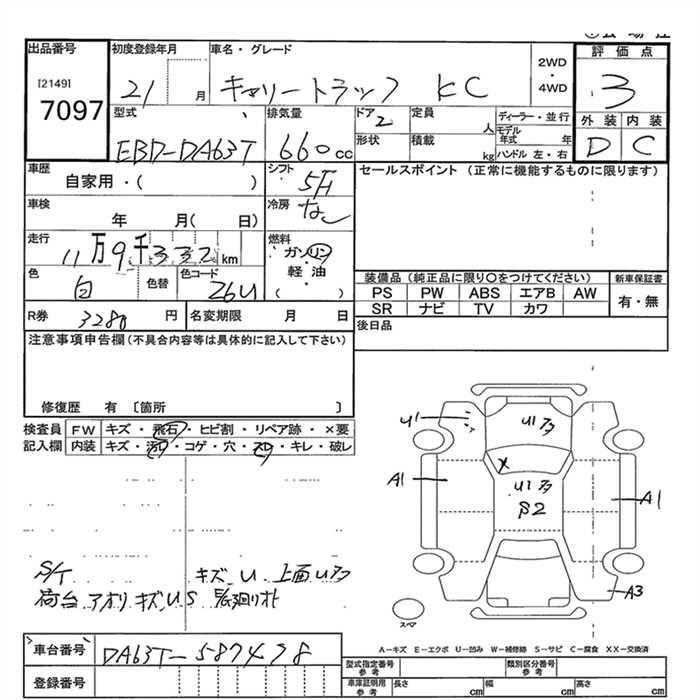 出品番号 初度登録年月 車名・グレード 2WD・4WD 評価点
[2149] 7097 21 月 キャリートラック KC 3
型式 排気量 ドア 2 定員 人 ディーラー・並行 外装 内装
EBD-DA63T 660cc 形状 積載 kg モデル年式 年 ハンドル 左・右 D C
車歴 シフト セールスポイント (正常に機能するものに限ります)
自家用・( ) 5F
車検 冷房
年 月( 日) なし
走行 燃料
11万9千332km ガソリン・軽油
色 色替 色コード ( )
白 26U
装備品 (純正品に限り○をつけてください) 新車保証書
PS PW ABS エアB AW 有・無
SR ナビ TV カワ
R券 3280 円 名変期限 月 日 後日品
注意事項申告欄(不具合内容等は具体的に記入して下さい)
修復歴 有 〔箇所 〕
検査員 FW キズ・飛石・ヒビ割・リペア跡・×要
記入欄 内装 キズ・汚れ・コゲ・穴・スレ・キレ・破レ
U1
U1 アタ
X
A1
U1 アタ
S2
A1
A3
スペア
S/T キズ U 上面 U アタ
荷台 アオリ キズ U S
A-キズ E-エクボ U-凹み W-補修跡 S-サビ C-腐食 XX-交換済
車台番号 DA63T-587478
登録番号
型式指定番号 参考 類別区分番号 参考
車庫証明用 参考 長さ cm 幅 cm 高さ cm